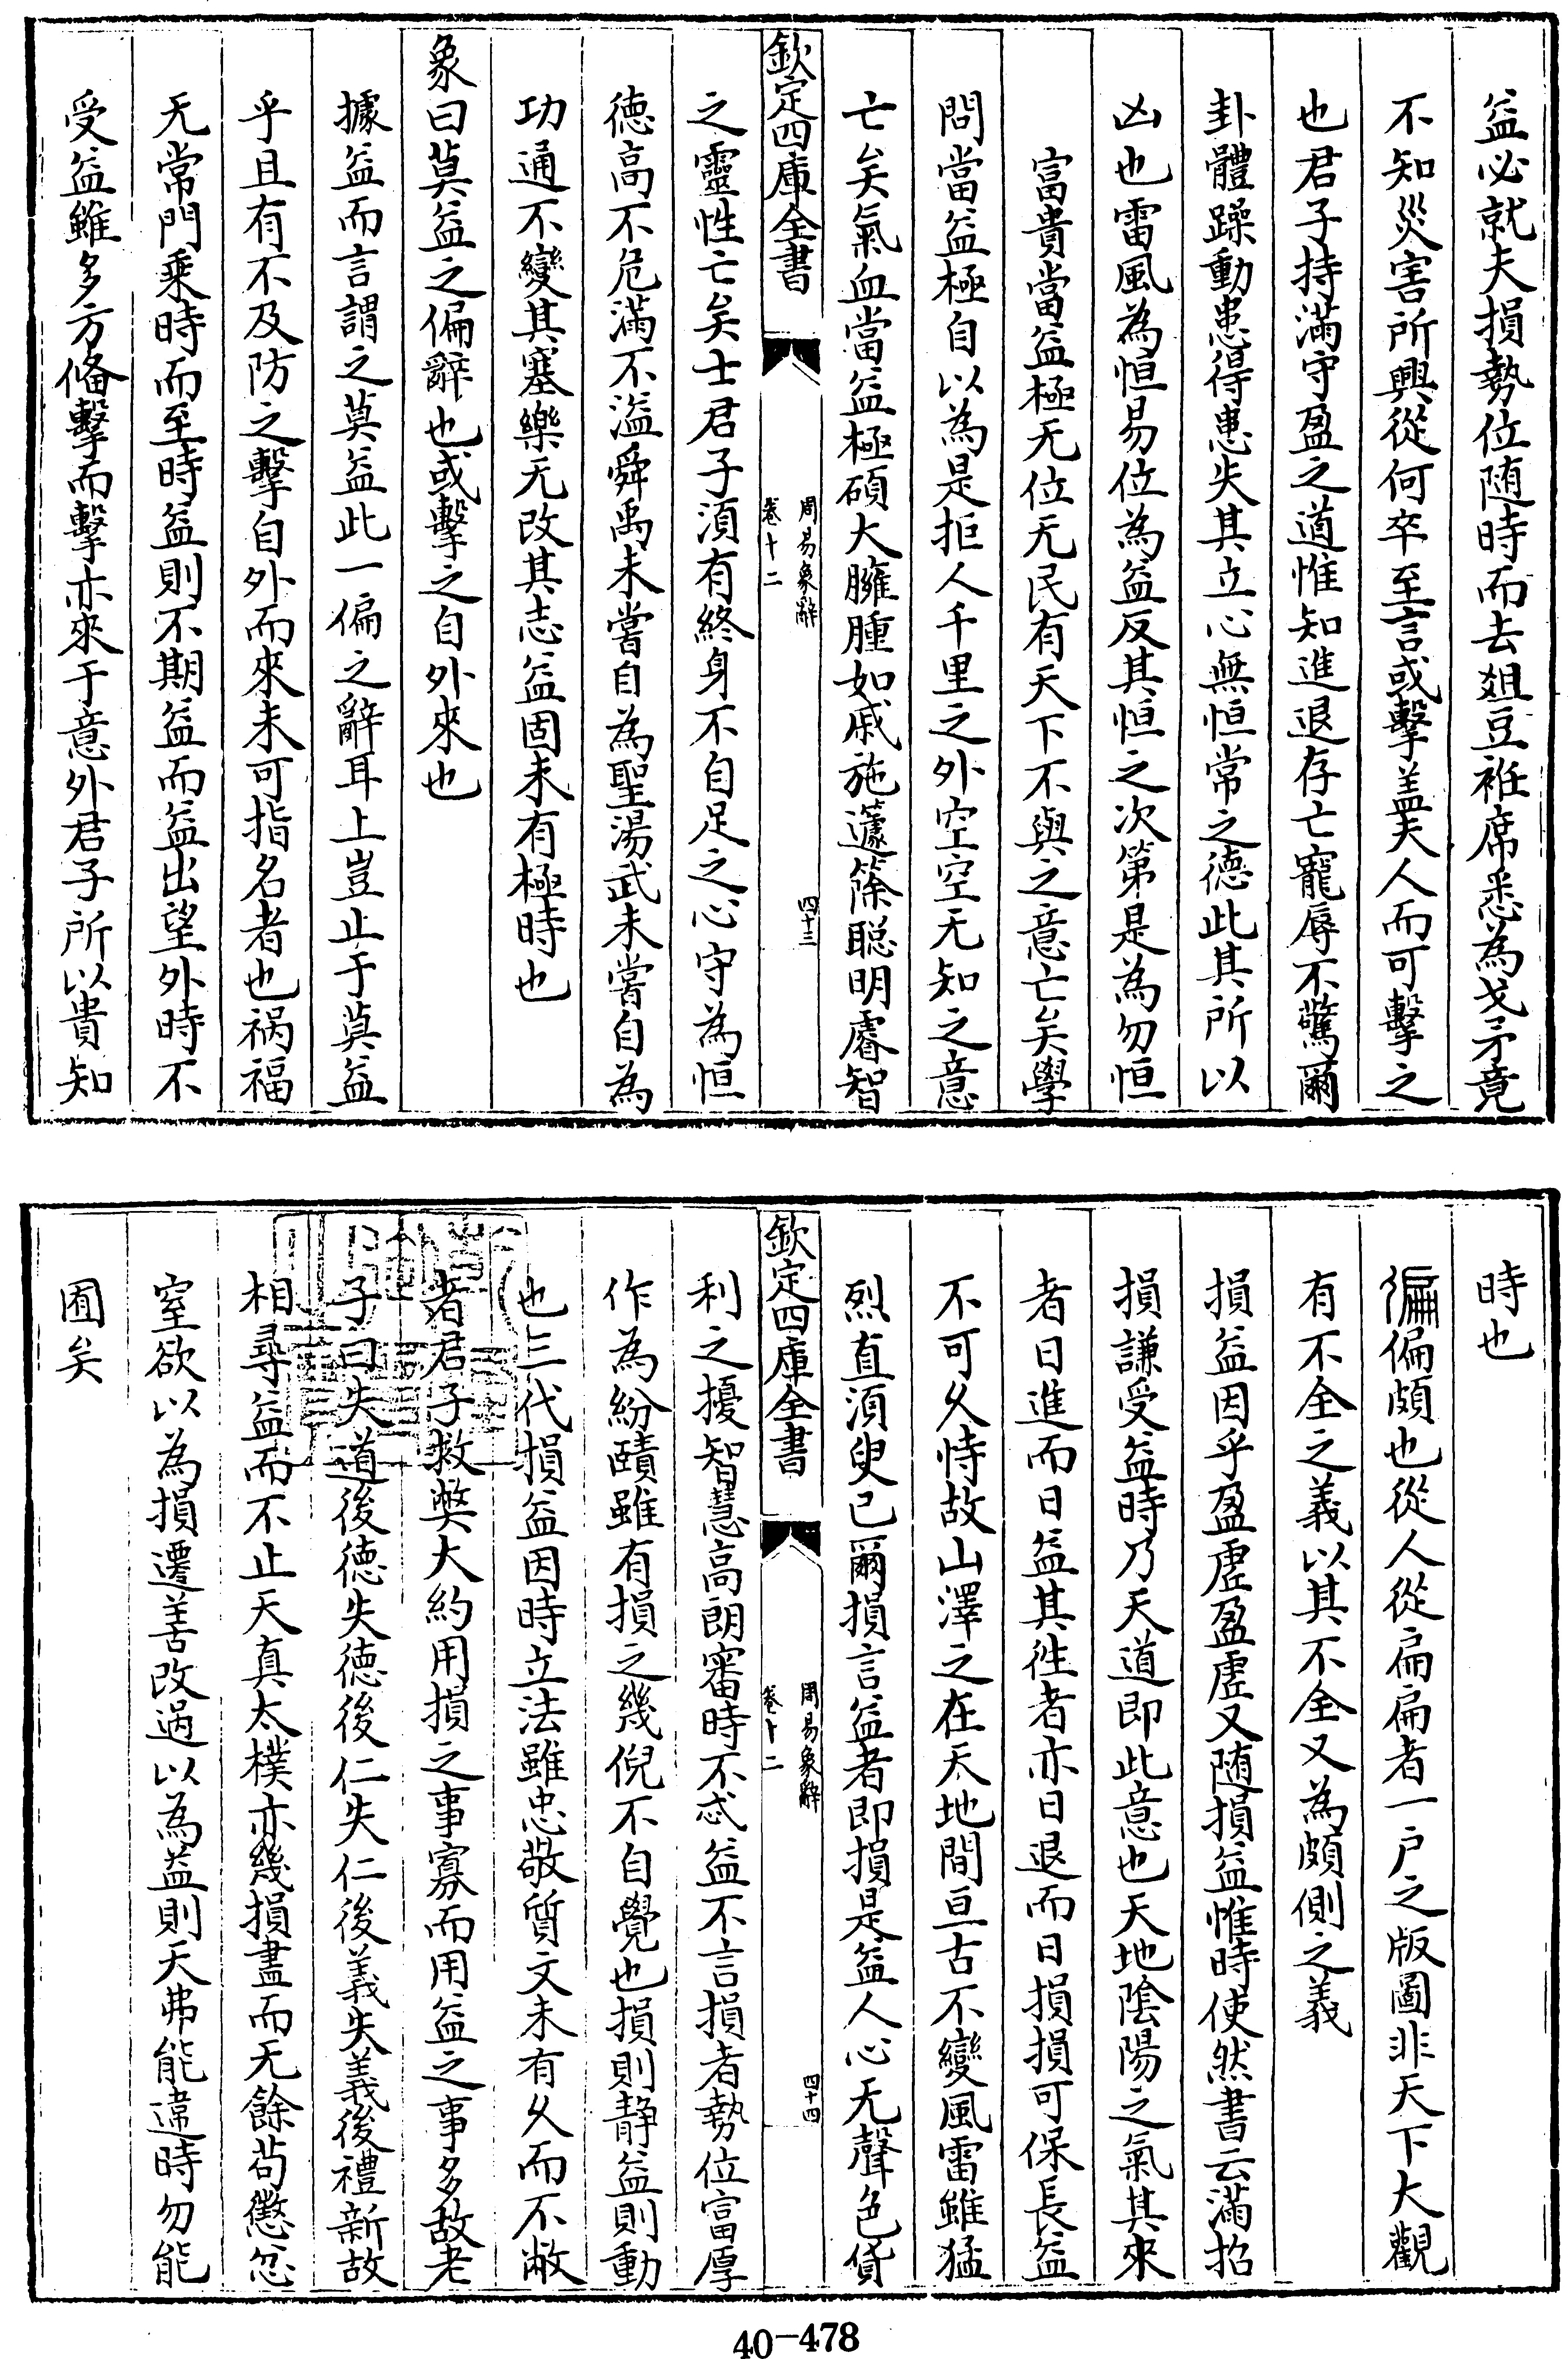 益必就夫損勢位随時而去爼豆袵席悉為戈矛竟
不知災害所興從何卒至言或擊盖夫人而可擊之
也君子持滿守盈之道惟知進退存亡寵辱不驚爾
卦體躁動患得患失其立心無恒常之徳此其所以
凶也雷風為恒易位為益反其恒之次第是為勿恒
富貴當益極无位无民有天下不與之意亡矣學
問當益極自以為是拒人千里之外空空无知之意
亡矣氣血當益極碩大臃腫如戚施蘧篨聰明睿智
欽定四庫全書
周易象辭
卷十二
四十三
之靈性亡矣士君子須有終身不自足之心守為恒
徳高不危滿不溢舜禹未嘗自為聖湯武未嘗自為
功通不變其塞樂无改其志益固未有極時也
象曰莫益之偏辭也或擊之自外來也
據益而言謂之莫益此一偏之辭耳上豈止于莫益
乎且有不及防之擊自外而來未可指名者也禍福
无常門乘時而至時益則不期益而益出望外時不
受益雖多方偹擊而擊亦來于意外君子所以貴知
時也
偏頗也從人從扁扁者一户之版圖非天下大觀
有不全之義以其不全又為頗側之義
損益因乎盈虛盈虛又随損益惟時使然書云滿招
損謙受益時乃天道即此意也天地隂陽之氣其來
者日進而日益其徃者亦日退而日損損可保長益
不可久恃故山澤之在天地間亘古不變風雷雖猛
烈直須臾已爾損言益者即損是益人心无聲色貨
欽定四庫全書
周易象辭
卷十二
四十四
利之擾智慧高朗審時不忒益不言損者勢位富厚
作為紛賾雖有損之幾倪不自覺也損則静益則動
也三代損益因時立法雖忠敬質文未有久而不敝
者君子救獘大約用損之事寡而用益之事多故老
子曰失道後徳失徳後仁失仁後義失義後禮新故
相尋益而不止天真太樸亦幾損盡而无餘茍懲忿
窒欲以為損遷善改過以為益則天弗能違時勿能
囿矣
40-478